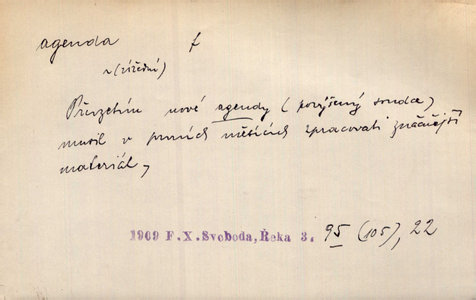 agenda f
n (úřední)
Převzetím nové agendy (povýšený soudce)
musil v prvních měsících zpracovati značnější
materiál,
1909 F.X.Svoboda, Řeka 3. 95 (105), 22